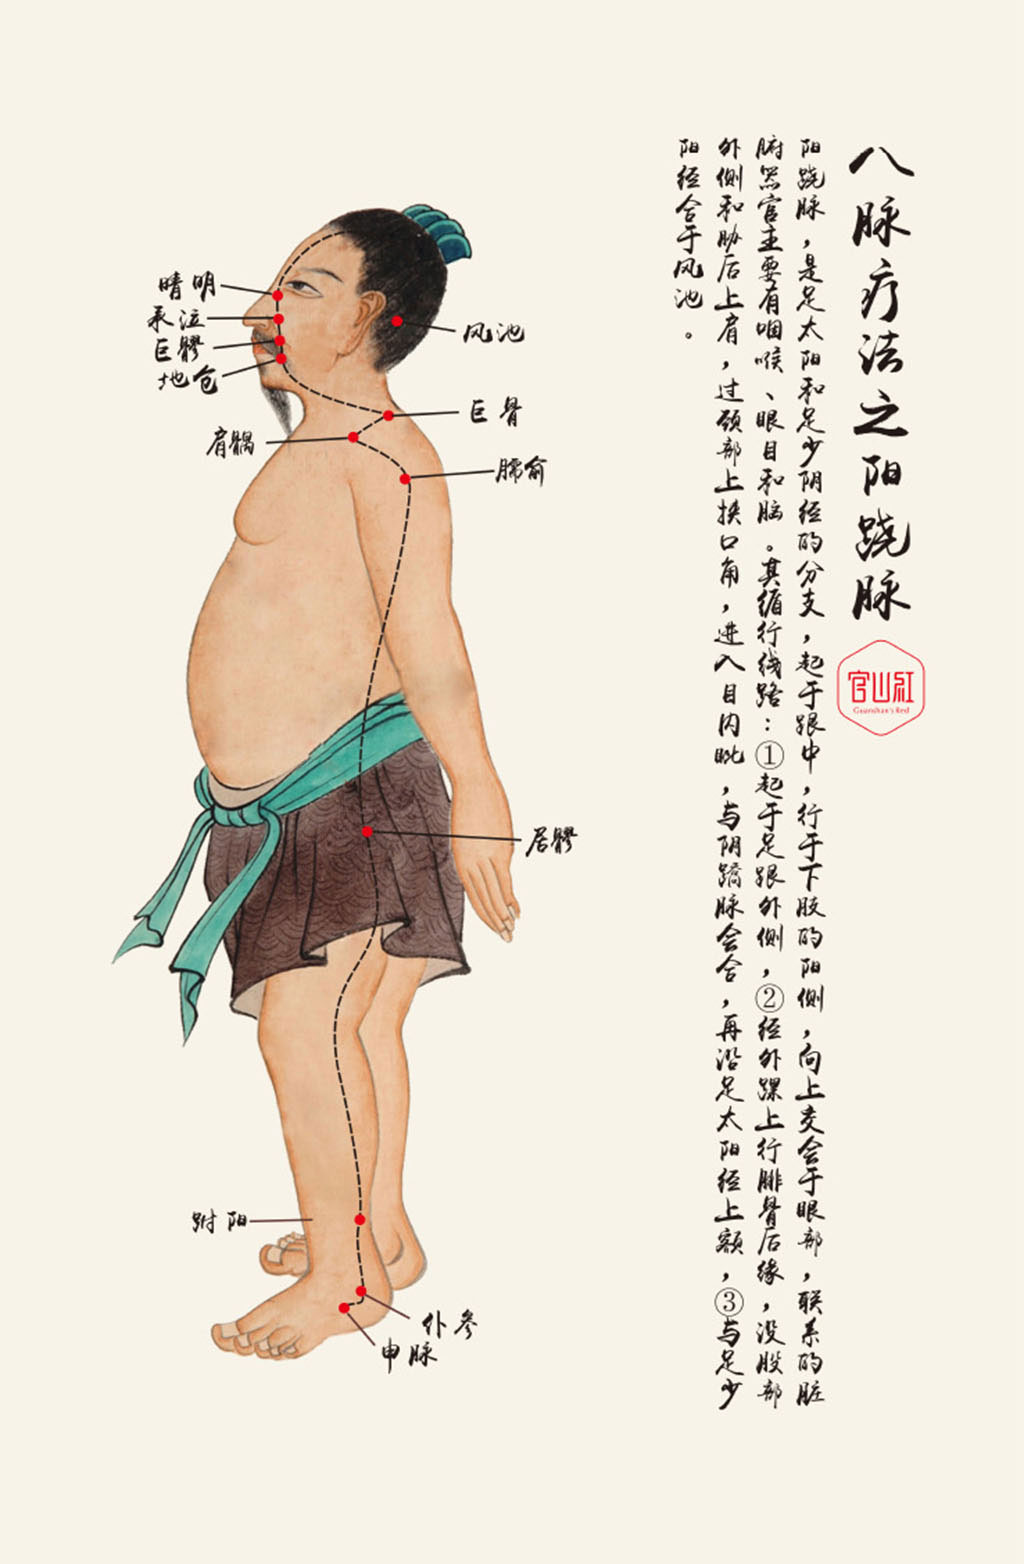 八脉疗法之阳跷脉
官山红
Guanshan's Red
阳跷脉，是足太阳和足少阴经的分支，起于跟中，行于下肢的阳侧，向上交会于眼部，联系的脏
腑器官主要有咽喉、眼目和脑。其循行线路：①起于足跟外侧，②经外踝上行腓骨后缘，没股部
外侧和胁后上肩，过颈部上挟口角，进入目内眦，与阴蹻脉会合，再沿足太阳经上额，③与足少
阳经合于风池。
晴明
承泣
巨髎
地仓
风池
巨骨
肩髃
臑俞
居髎
跗阳
仆参
申脉